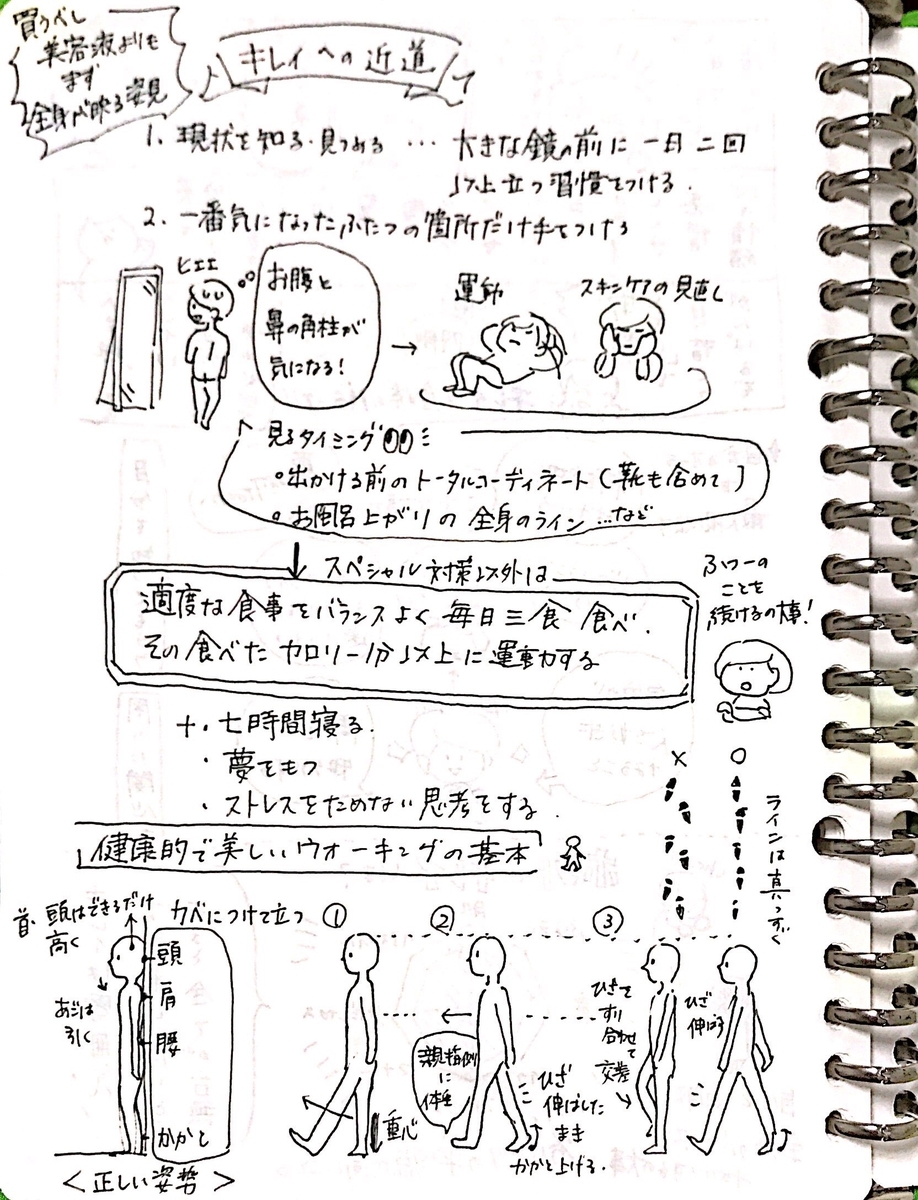 買うべし
美容液よりも
まず
全身が映る姿見
キレイへの近道
1. 現状を知る・見つめる … 大きな鏡の前に 一日 二回
以上立つ習慣をつける.
2. 一番気になったふたつの箇所だけ手をつける
ヒエエ
お腹と
鼻の角柱が
気になる!
→
運動
スキンケアの見直し
見るタイミング
。出かける前のトータルコーディネート(靴も含めて)
。お風呂上がりの全身のライン …など
↓ スペシャル対策以外は
適度な食事をバランスよく毎日三食 食べ.
その食べたカロリー分以上に運動する
ふつーの
ことを
続けるの大事!
+・七時間寝る.
・夢をもつ
・ストレスをためない思考をする.
× ○
ラインは真っすぐ
健康的で美しいウオーキングの基本
首・頭はできるだけ
高く
あごは
引く
カベにつけて立つ
頭
肩
腰
かかと
<正しい姿勢>
① ② ③
重心
親指側
に
体重
ひざ
伸ばした
まま
かかと上げる.
ひざを
すり
合わせて
交差
ひざ
伸ばす